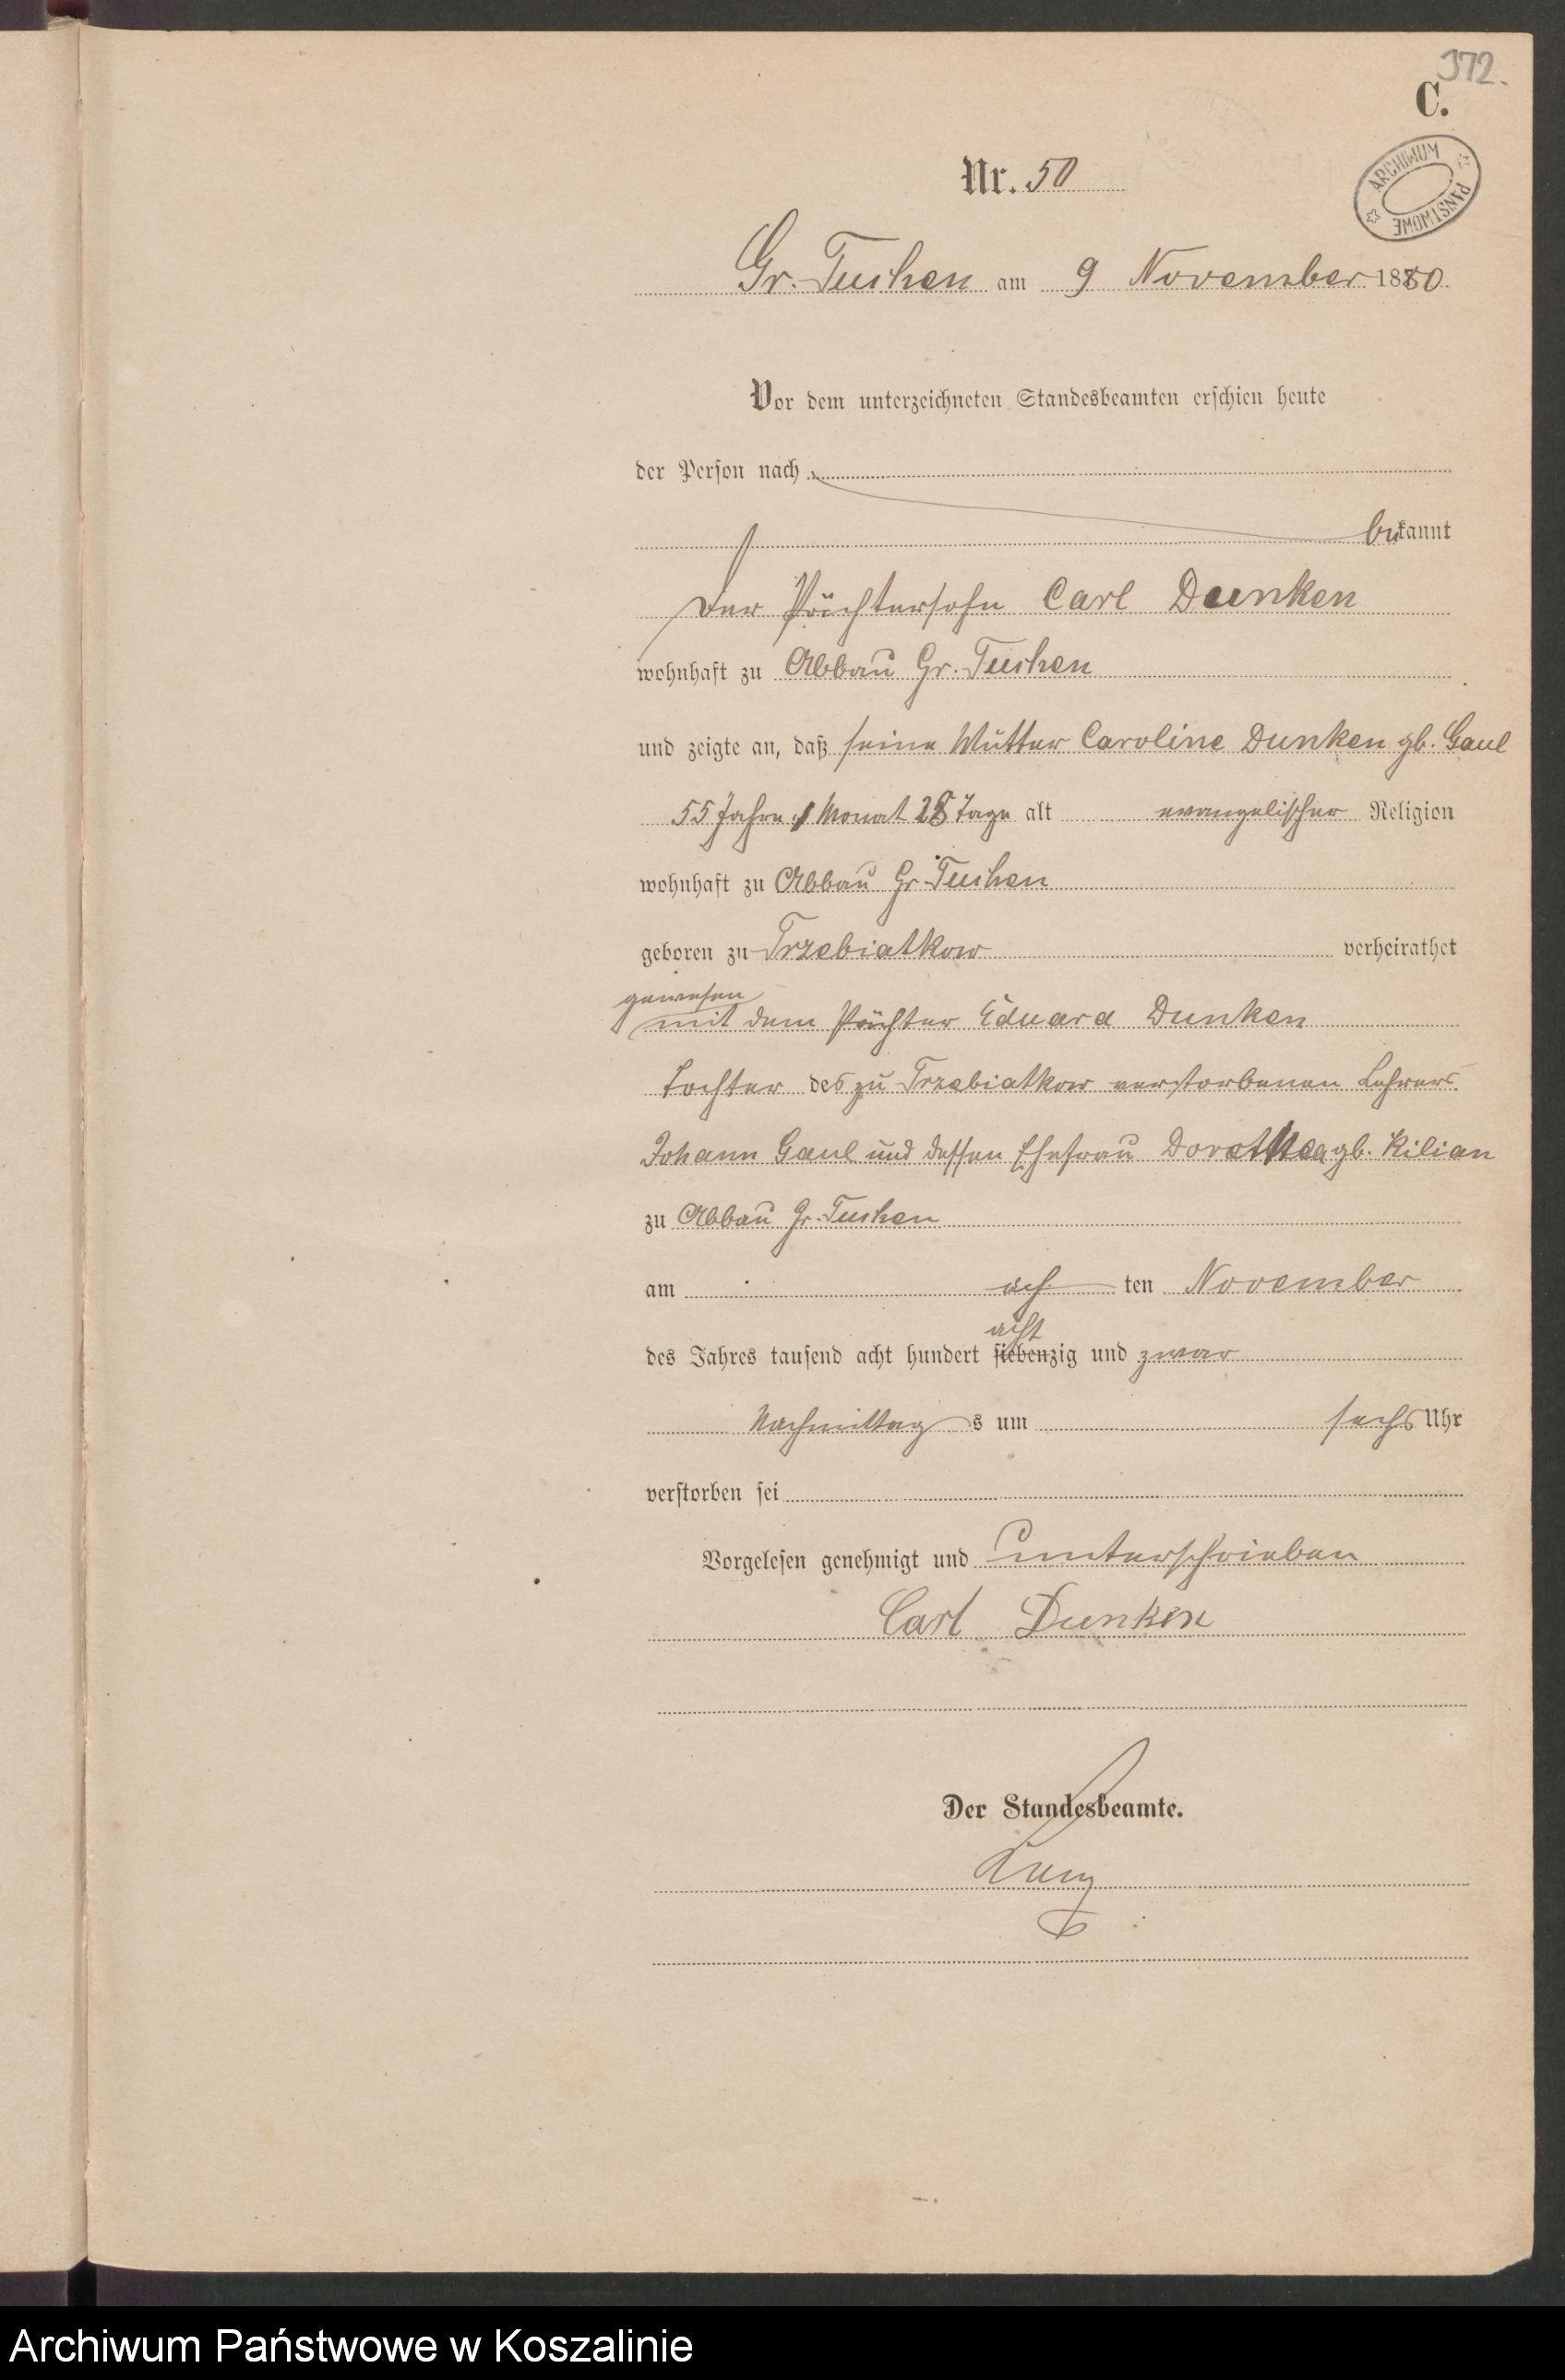 372.
C.
ARCHIWUM PAŃSTWOWE
Nr. 50
Gr. Tuchen am 9 November 1880
Vor dem unterzeichneten Standesbeamten erschien heute
der Person nach
bekannt
der Pächtersohn Carl Dunken
wohnhaft zu Abbau Gr. Tuchen
und zeigte an, daß seine Mutter Caroline Dunken gb. Gaul
55 Jahre 1 Monat 28 Tage alt evangelischer Religion
wohnhaft zu Abbau Gr. Tuchen
geboren zu Trzebiatkow verheirathet
gewesen
mit dem Pächter Eduard Dunken
Tochter des zu Trzebiatkow verstorbenen Lehrers
Johann Gaul und dessen Ehefrau Dorothea gb. Kilian
zu Abbau Gr. Tuchen
am ach ten November
acht
des Jahres tausend acht hundert siebenzig und zwar
Nachmittag s um sechs Uhr
verstorben sei
Vorgelesen genehmigt und unterschrieben
Carl Dunken
Der Standesbeamte.
Archiwum Państwowe w Koszalinie